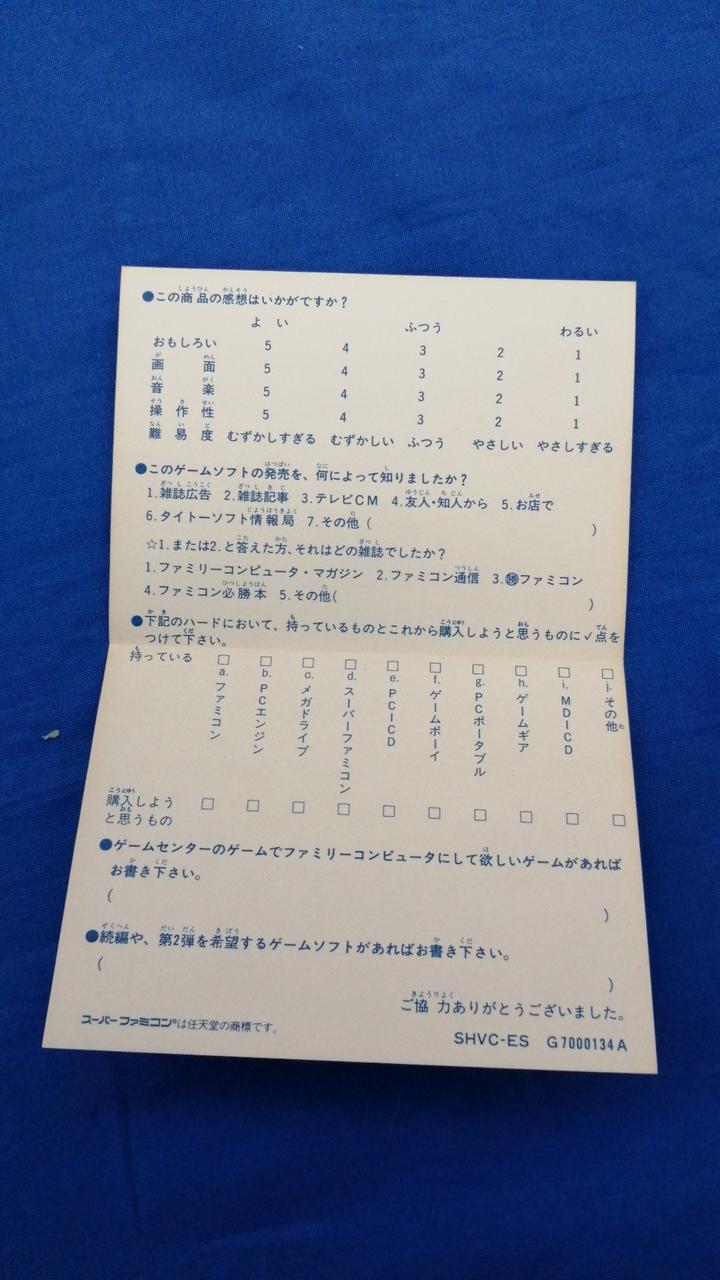 ●この商品の感想はいかがですか？
よい ふつう わるい
おもしろい 5 4 3 2 1
画面 5 4 3 2 1
音楽 5 4 3 2 1
操作性 5 4 3 2 1
難易度 むずかしすぎる むずかしい ふつう やさしい やさしすぎる
●このゲームソフトの発売を、何によって知りましたか？
1.雑誌広告 2.雑誌記事 3.テレビCM 4.友人・知人から 5.お店で
6.タイトーソフト情報局 7.その他（ ）
☆1.または2.と答えた方、それはどの雑誌でしたか？
1.ファミリーコンピュータ・マガジン 2.ファミコン通信 3.㊝ファミコン
4.ファミコン必勝本 5.その他（ ）
●下記のハードにおいて、持っているものとこれから購入しようと思うものに✓点を
つけて下さい。
持っている □ □ □ □ □ □ □ □ □ □
a.ファミコン
b.PCエンジン
c.メガドライブ
d.スーパーファミコン
e.PCICD
f.ゲームボーイ
g.PCポータブル
h.ゲームギア
i.MDICD
j.その他
購入しよう
と思うもの □ □ □ □ □ □ □ □ □ □
●ゲームセンターのゲームでファミリーコンピュータにして欲しいゲームがあれば
お書き下さい。
（ ）
●続編や、第2弾を希望するゲームソフトがあればお書き下さい。
（ ）
ご協力ありがとうございました。
スーパーファミコン®は任天堂の商標です。
SHVC-ES G7000134A